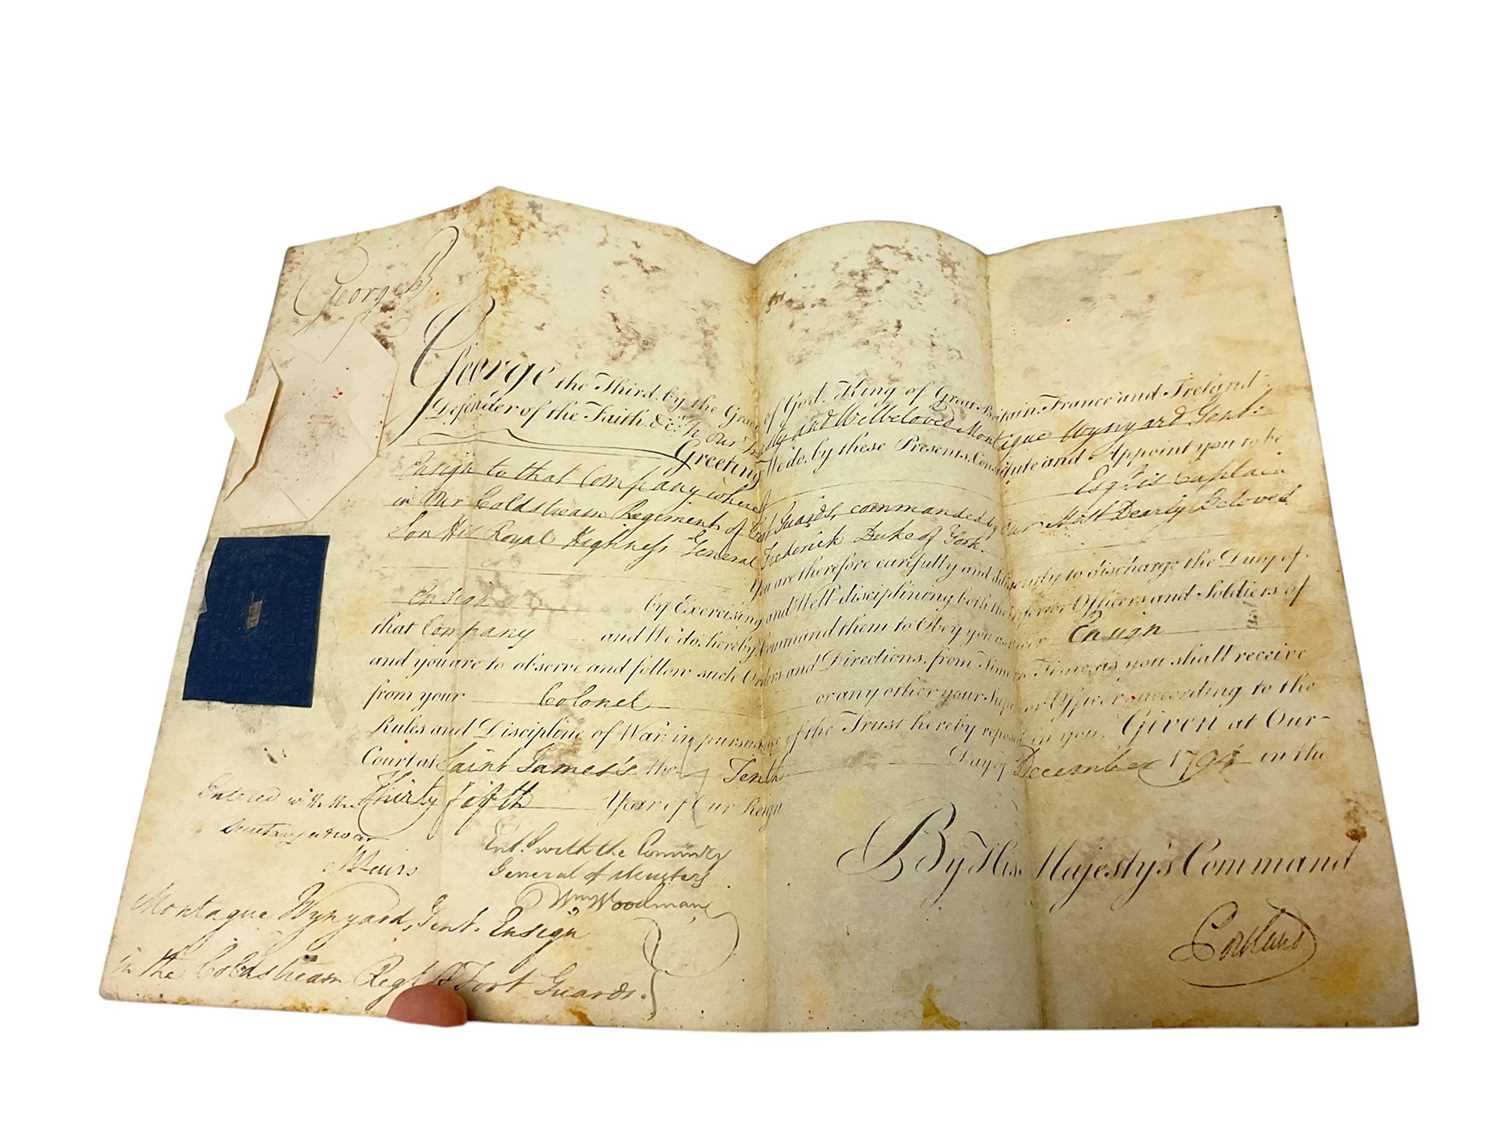 George R
George the Third by the Grace of God, King of Great Britain, France and Ireland,
Defender of the Faith, &c. To Our Trusty and Wellbeloved Montague Wynyard Gent:
Greeting We do, by these Presents, Constitute and Appoint you to be
Ensign to that Company whereof Esqr is Captain
in Our Coldstream Regiment of Foot Guards, commanded by Our Most Dearly Beloved
Son His Royal Highness General Frederick Duke of York.
You are therefore carefully and diligently to discharge the Duty of
Ensign by Exercising and Well disciplining both the Inferior Officers and Soldiers of
that Company and We do hereby Command them to Obey you as their Ensign
and you are to observe and follow such Orders and Directions, from Time to Time, as you shall receive
from your Colonel or any other your Superior Officer, according to the
Rules and Discipline of War, in pursuance of the Trust hereby reposed in you. Given at Our
Court at Saint James's the Tenth Day of December 1794 in the
Thirty fifth Year of Our Reign
Entered with the
Secretary at War
Entd. with the Commissy
General of Musters
Wm Woodman
By His Majesty's Command
Portland
Montague Wynyard, Gent. Ensign
in the Coldstream Regt. of Foot Guards.